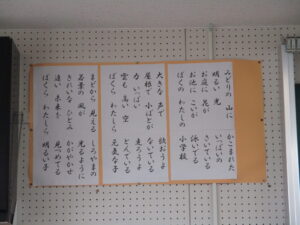 みどりの 山に かこまれた
明るい 光 いっぱいの
お庭に 花が さいている
お池に こいが 泳いでる
ぼくの わたしの 小学校
大きな 声で 歌おうよ
屋根で 小ばとが ないている
力 いっぱい 走ろうよ
雲も 高い 空 とんでいる
ぼくら わたしら 元気な子
まどから 見える しろやまの
若葉の 風が 光るように
きれいな ひとみ かがやかせ
遠い 未来を 見つめてる
ぼくら わたしら 明るい子